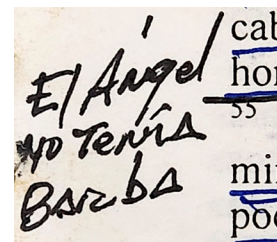 El Ángel
no Tenía
Barba
cab
hor
55
mi
poc